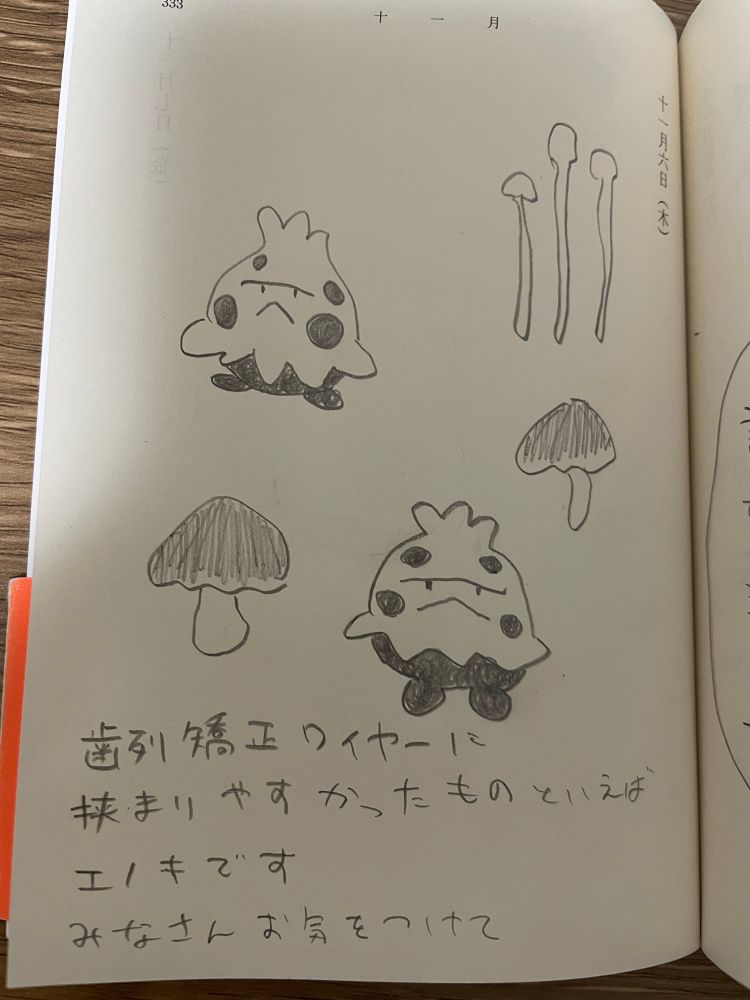 333
十一月
十一月六日（木）
十一月七日（金）
歯列矯正ワイヤーに
挟まりやすかったものといえば
エノキです
みなさんお気をつけて